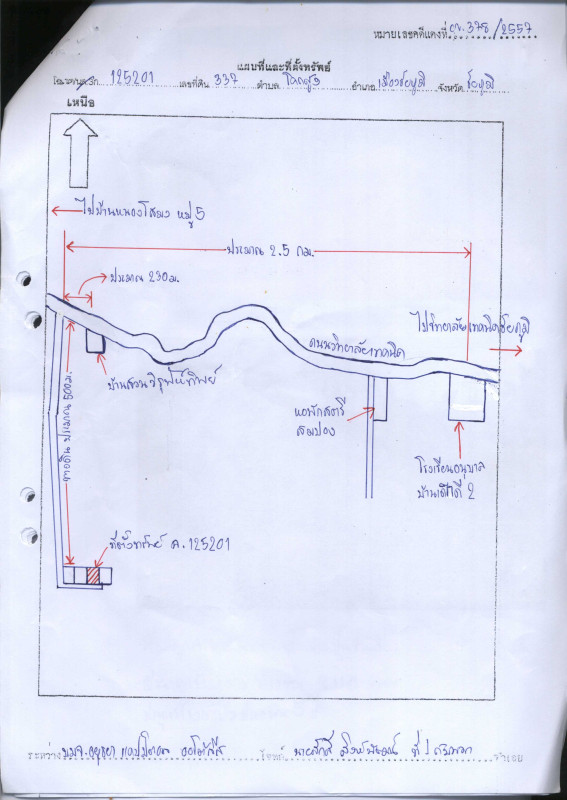 หมายเลขคดีแดงที่ ผบ.378/2557
แผนที่และที่ตั้งทรัพย์
โฉนด/น.ส. 125201 เลขที่ดิน 337 ตำบล อำเภอ เมืองชัยภูมิ จังหวัด ชัยภูมิ
เหนือ
ไปบ้านหนองโสมง หมู่ 5
ประมาณ 2.5 กม.
ประมาณ 230 ม.
ไปวิทยาลัยเทคนิคชัยภูมิ
ถนนวิทยาลัยเทคนิค
บ้านสวนวิรุฬห์ทิพย์
ทางดิน ประมาณ 500 ม.
หอพักสตรี
สมปอง
โรงเรียนอนุบาล
บ้านเด็กดี 2
ที่ตั้งทรัพย์ ฉ.125201
ระหว่าง บมจ.อยุธยา แคปปิตอล ออโต้ลีส โจทก์ นายศักดิ์ ที่ 1 จำเลย